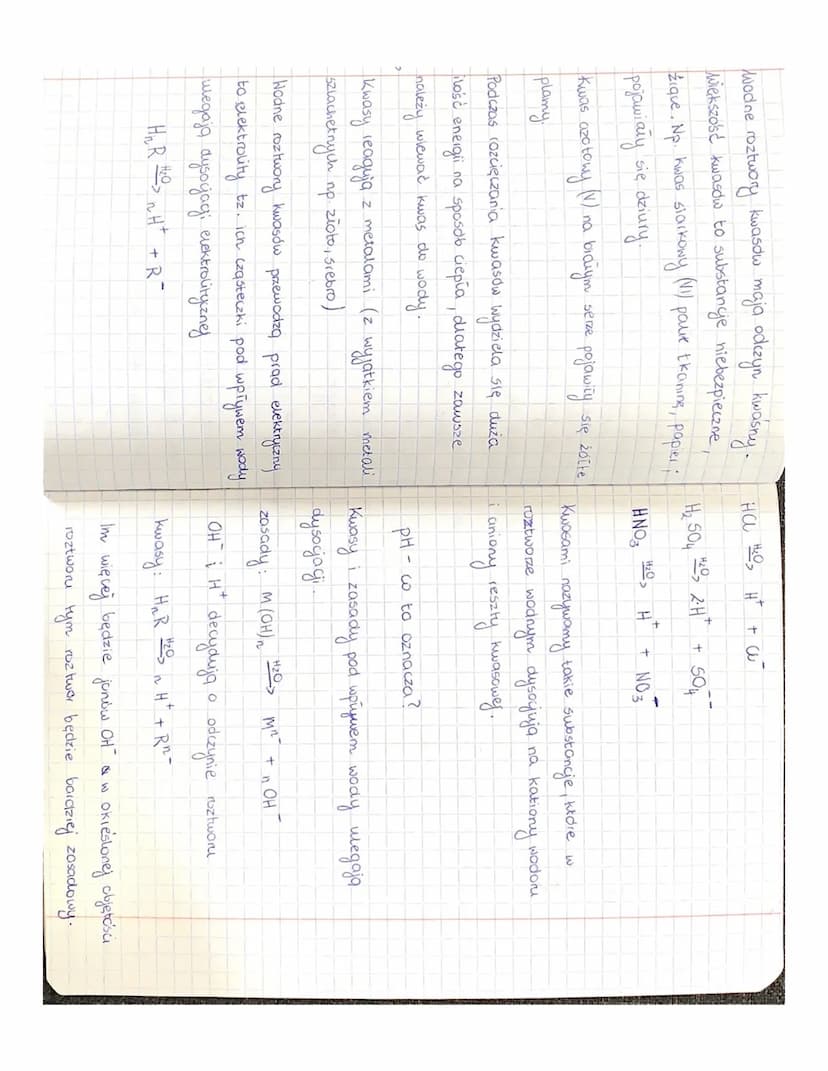 Wodne roztwory kwasów mają odczyn kwaśny.
Większość kwasów to substancje niebezpieczne,
żrące. Np. kwas siarkowy (VI) palił tkaninę, papier i
pojawiały się dziury.
Kwas azotowy (V) na białym serze pojawiły się żółte
plamy.
Podczas rozcięczania kwasów wydziela się duża
ilość energii na sposób ciepła, dlatego zawsze
należy wlewać kwas do wody.
Kwasy reagują z metalami (z wyjątkiem metali
szlachetnych np. złoto, srebro)
Wodne roztwory kwasów przewodzą prąd elektryczny
to elektrolity tz. ich cząsteczki pod wpływem wody
ulegają dysocjacji elektrolitycznej
HₙR —H₂O→ nH⁺ + R⁻
HCl —H₂O→ H⁺ + Cl⁻
H₂SO₄ —H₂O→ 2H⁺ + SO₄⁻⁻
HNO₃ —H₂O→ H⁺ + NO₃⁻
Kwasami nazywamy takie substancje, które w
roztworze wodnym dysocjują na kationy wodoru
i aniony reszty kwasowej.
pH - co to oznacza?
Kwasy i zasady pod wpływem wody ulegają
dysocjacji.
zasady: M(OH)ₙ —H₂O→ Mⁿ⁻ + nOH⁻
OH⁻ i H⁺ decydują o odczynie roztworu
kwasy: HₙR —H₂O→ nH⁺ + Rⁿ⁻
Im więcej będzie jonów OH⁻ w określonej objętości
roztworu tym roztwór będzie bardziej zasadowy.